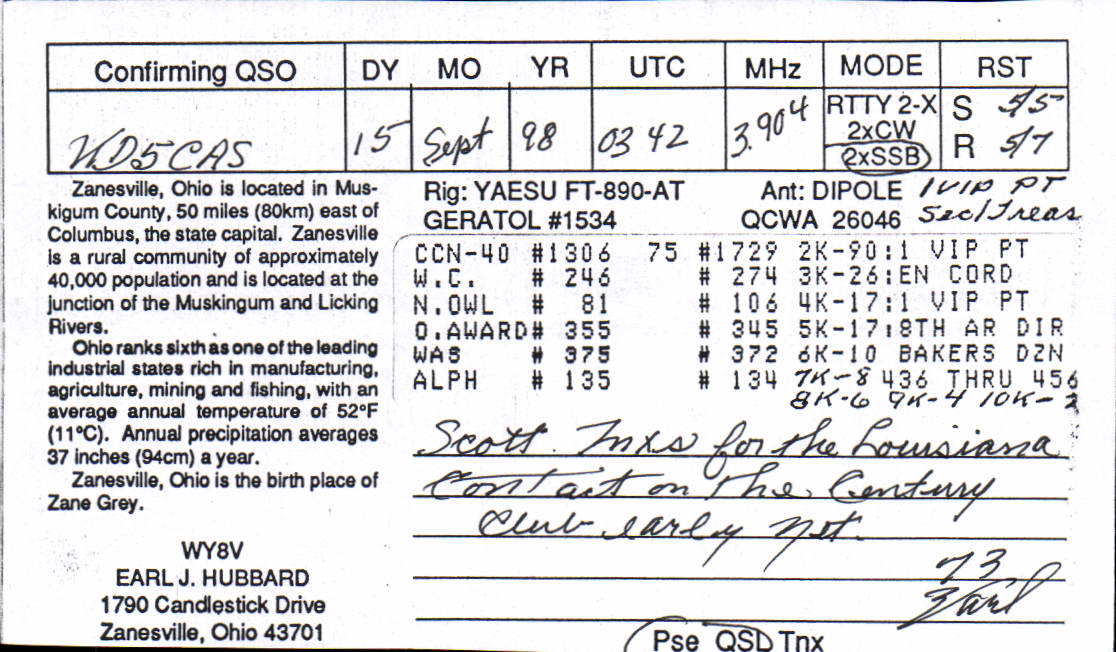 Confirming QSO DY MO YR UTC MHz MODE RST
WD5CAS 15 Sept 98 0342 3.904 RTTY 2-X S 5/5
2xCW
2xSSB R 5/7
Zanesville, Ohio is located in Mus-
kigum County, 50 miles (80km) east of
Columbus, the state capital. Zanesville
is a rural community of approximately
40,000 population and is located at the
junction of the Muskingum and Licking
Rivers.
Ohio ranks sixth as one of the leading
industrial states rich in manufacturing,
agriculture, mining and fishing, with an
average annual temperature of 52°F
(11°C). Annual precipitation averages
37 inches (94cm) a year.
Zanesville, Ohio is the birth place of
Zane Grey.
WY8V
EARL J. HUBBARD
1790 Candlestick Drive
Zanesville, Ohio 43701
Rig: YAESU FT-890-AT Ant: DIPOLE 1 VIP PT
GERATOL #1534 QCWA 26046 Sec/Treas
CCN-40 #1306 75 #1729 2K-90:1 VIP PT
W.C. # 246 # 274 3K-26:EN CORD
N.OWL # 81 # 106 4K-17:1 VIP PT
O.AWARD# 355 # 345 5K-17:8TH AR DIR
WAS # 375 # 372 6K-10 BAKERS DZN
ALPH # 135 # 134 7K-8 436 THRU 456
8K-6 9K-4 10K-2
Scott. Tnxs for the Louisiana
Contact on The Century
Club early net.
73,
Earl
Pse QSL Tnx